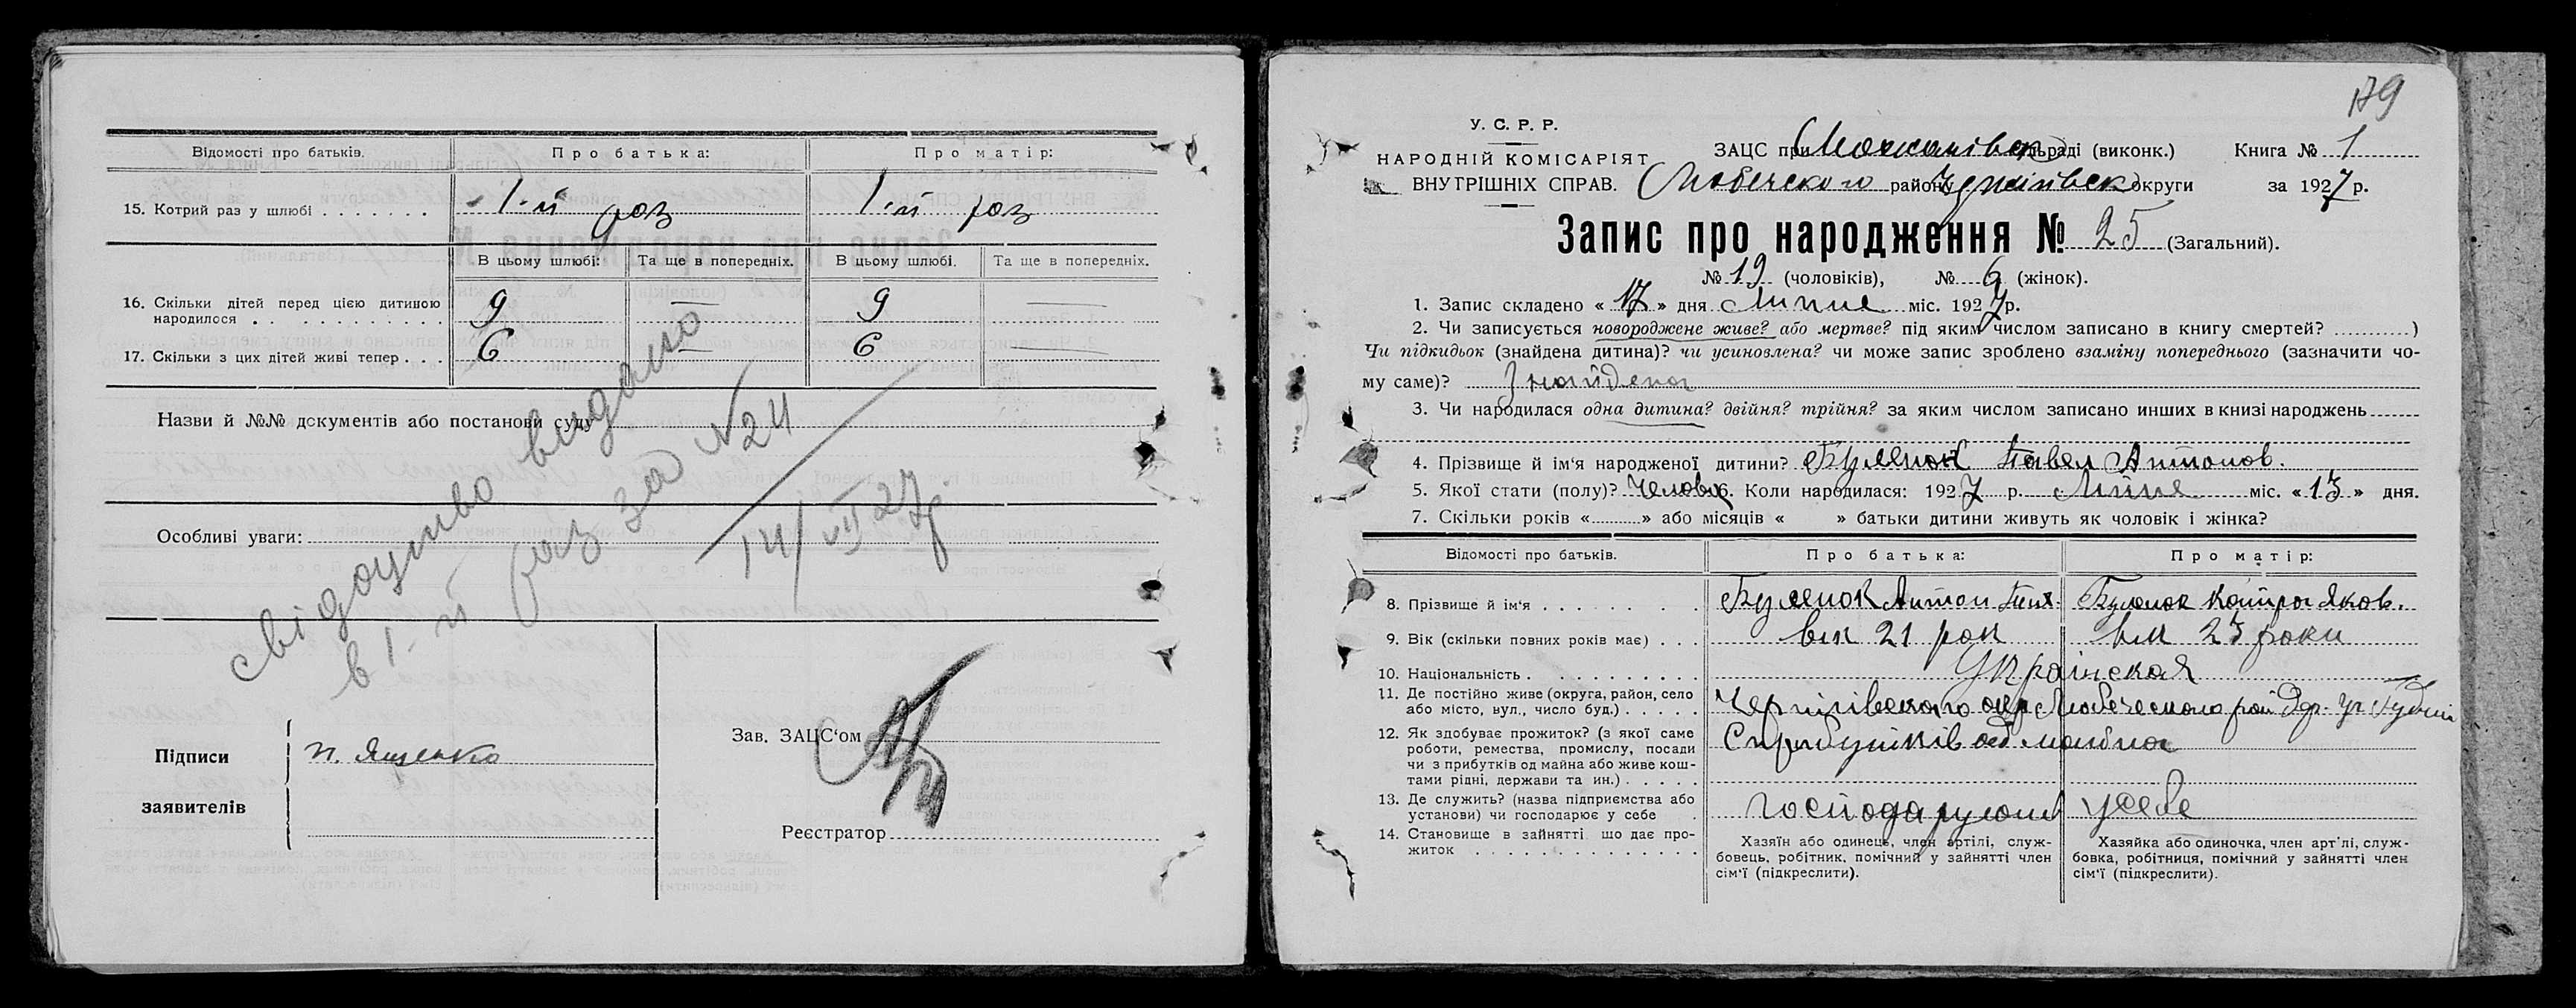 Відомості про батьків. Про батька: Про матір:
15. Котрий раз у шлюбі . . . . . . . 1-й раз 1-й раз
В цьому шлюбі: Та ще в попередніх. В цьому шлюбі. Та ще в попередніх.
16. Скільки дітей перед цією дитиною
народилося . . . . . . . . . . . 9 — 9 —
17. Скільки з цих дітей живі тепер . . . 6 — 6 —
Назви й №№ документів або постанови суду
Особливі уваги:
свідоцтво видано
в 1-й раз за № 24
14/VII 27р
Підписи
заявителів
п. Ященко
Зав. ЗАЦС'ом
Реєстратор
179
У. С. Р. Р.
НАРОДНІЙ КОМІСАРІЯТ
ВНУТРІШНІХ СПРАВ.
ЗАЦС при сільраді (виконк.) Книга № 1
Любечского району округи за 1927 р.
Запис про народження № 25 (Загальний).
№ 19 (чоловіків), № 6 (жінок).
1. Запис складено « 17 » дня Липня міс. 1927 р.
2. Чи записується новороджене живе? або мертве? під яким числом записано в книгу смертей? ............)
Чи підкидьок (знайдена дитина)? чи усиновлена? чи може запис зроблено взаміну попереднього (зазначити чо-
му саме)? Знайдена
3. Чи народилася одна дитина? двійня? трійня? за яким числом записано инших в книзі народжень
4. Прізвище й ім'я народженої дитини? Буленок Павел Антонов.
5. Якої стати (полу)? 6. Коли народилася: 1927 р. Липня міс. « 13 » дня.
7. Скільки років «..........» або місяців « » батьки дитини живуть як чоловік і жінка?
Відомості про батьків. Про батька: Про матір:
8. Прізвище й ім'я . . . . . . . . Буленок Антон Буленок Яков.
9. Вік (скільки повних років має) . . . вік 21 рок вік 23 роки
10. Національність . . . . . . . . . Украінская
11. Де постійно живе (округа, район, село
або місто, вул., число буд.) . . . . . Чернігівського окр Любечского рай
12. Як здобуває прожиток? (з якої саме
роботи, ремества, промислу, посади
чи з прибутків од майна або живе кош-
тами рідні, держави та ин.) . . . . .
13. Де служить? (назва підприємства або
установи) чи господарює у себе . господарують усебе
14. Становище в зайнятті що дає про-
житок . . . . . . . . . . . . . .
Хазяїн або одинець, член артілі, служ-
бовець, робітник, помічний у зайнятті член
сім'ї (підкреслити).
Хазяйка або одиночка, член арт'лі, служ-
бовка, робітниця, помічний у зайнятті член
сім'ї (підкреслити).